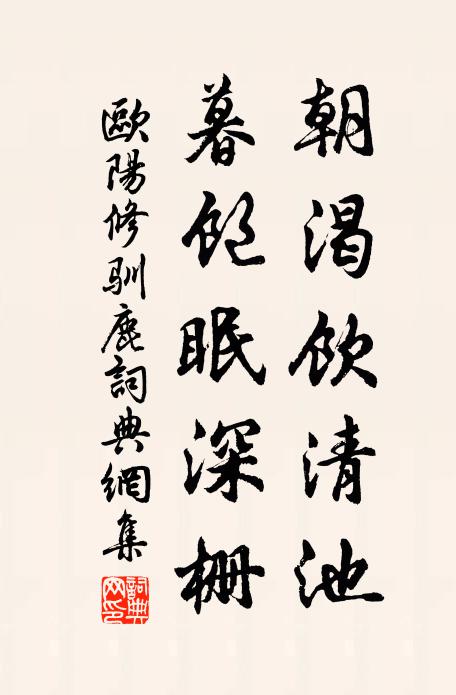 朝渴飲清池
暮飽眠深柵
歐陽修馴鹿詞典網集
詞典网印